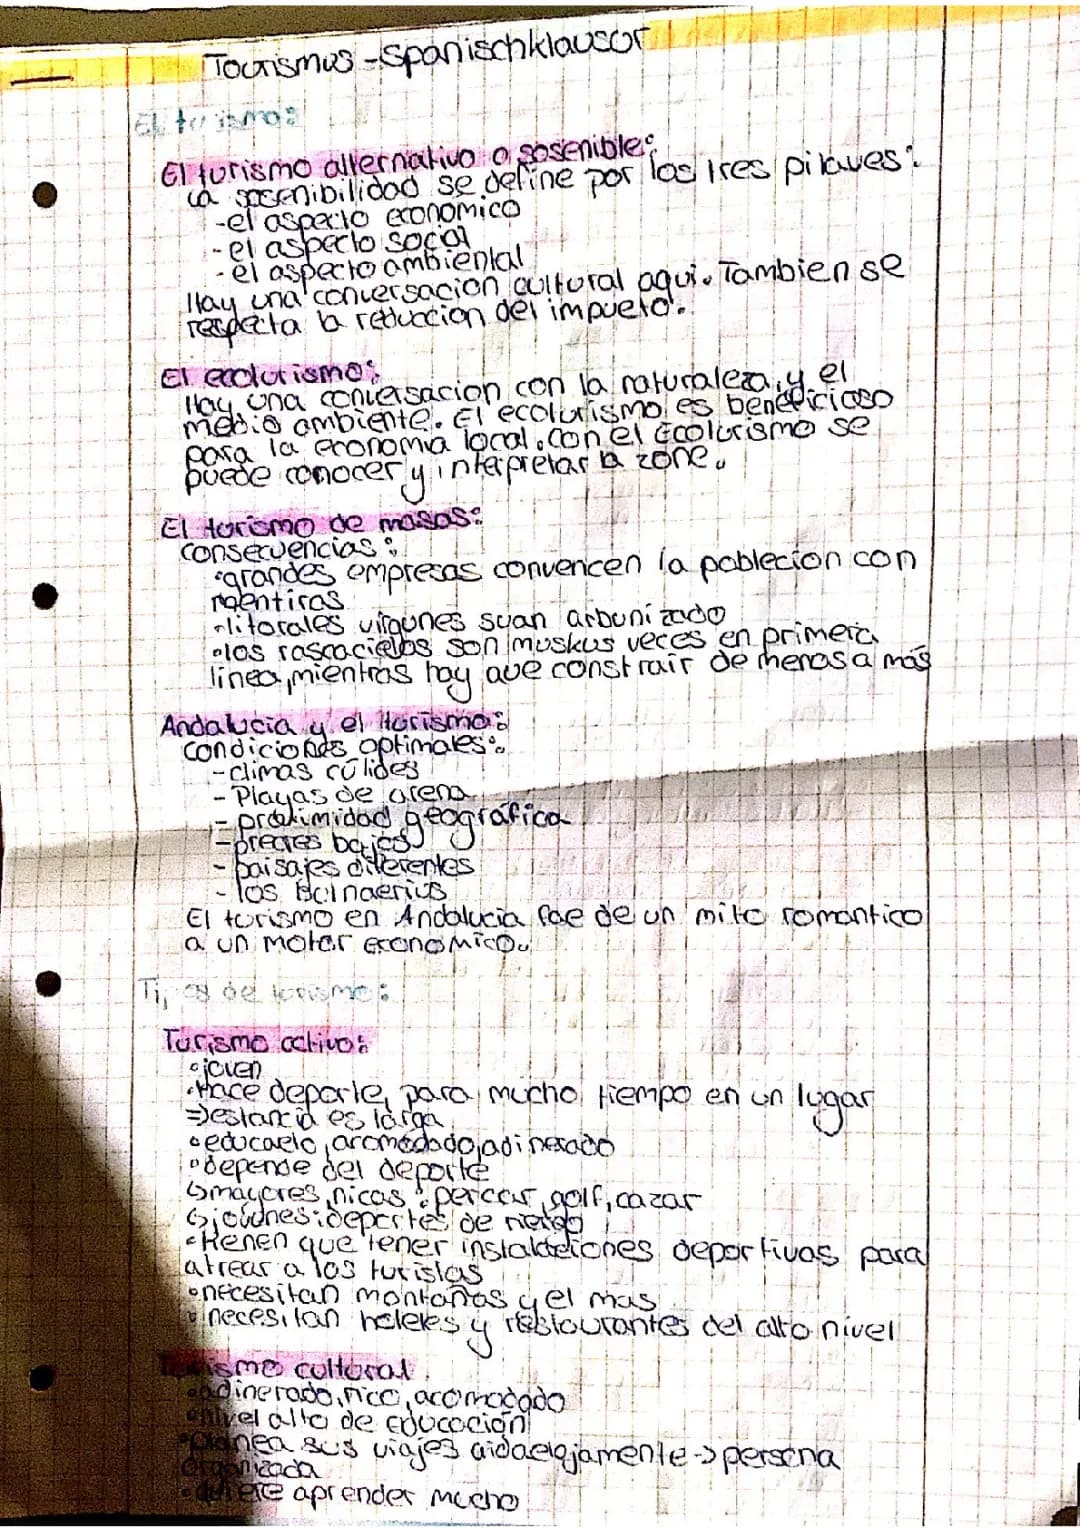 Tourismus - Spanischklausur
El turismo:
El turismo alternativo o sosenible:
La sosenibilidad se define por los tres pilaves:
-el aspecto economico
-el aspecto social
-el aspecto ambiental
Hay una conversacion cultural aqui. Tambien se
respecta la reduccion del impueto.
El ecoturismo:
Hay una conversacion con la naturaleza, y el
medio ambiente. El ecoturismo es beneficioso
para la economia local. con el Ecoturismo se
puede conocer y interpretar la zone.
El turismo de masas:
consecuencias:
•grandes empresas convencen la poblecion con
mentiras
•litorales virgunes suan arbunizado
•los rascacielos son muskus veces en primera
linea, mientras hay que construir de menos a más
Andalucia y el turismo:
condiciones optimales:
-climas cúlides
- Playas de arena
- proximidad geográfica
-precies bajos
- paisajes diferentes
- los Balnaerius
El turismo en Andalucia fae de un mito romantico
a un motor economico.
Tipos de turismo:
Turismo activo:
•joven
•Hace deporte, para mucho tiempo en un lugar
=>estancia es larga
•educaelo, aromodado, adinerado
•depende del deporte
↳mayores, ricas: percar, golf, cazar
↳jovnes: deportes de riesgo
•tienen que tener deportivas para
atrear a los turistas
•necesitan montañas y el mas
•necesitan heleles y restourantes del alto nivel
Turismo cultural
•adinerado, rico, acomodado
•nivel alto de educación
•planea sus viajes -> persona
organizada
•quiere aprender mucho